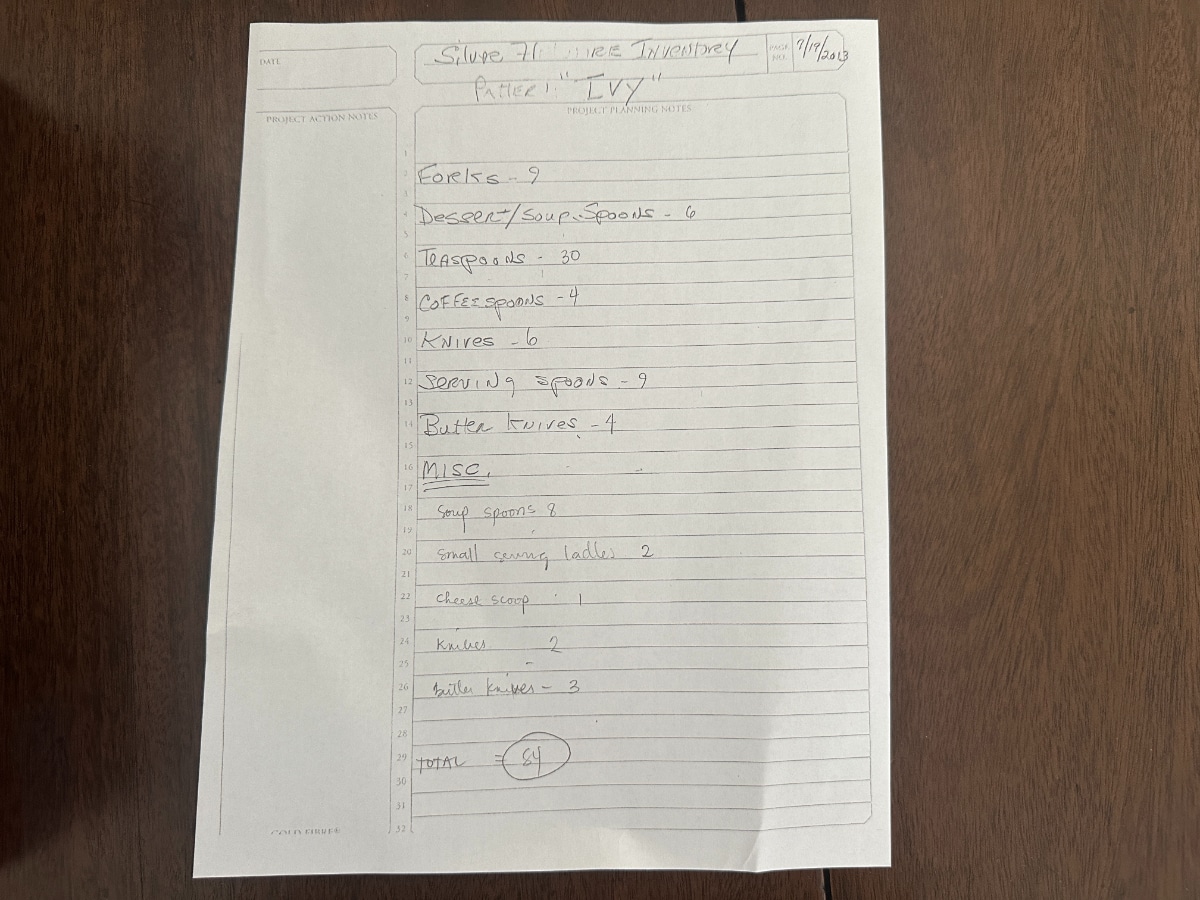 DATE
Silver Inventory
PAGE NO.
7/19/2013
"IVY"
PROJECT ACTION NOTES
PROJECT PLANNING NOTES
1
2 Forks - 9
3
4 Dessert/Soup Spoons - 6
5
6 Teaspoons - 30
7
8 Coffee spoons - 4
9
10 Knives - 6
11
12 Serving spoons - 9
13
14 Butter Knives - 4
15
16 MISC.
17
18 Soup spoons 8
19
20 Small serving ladles 2
21
22 Cheese scoop 1
23
24 Knives 2
25
26 butter knives - 3
27
28
29 TOTAL = 84
30
31
32
GOLD FIBRE®